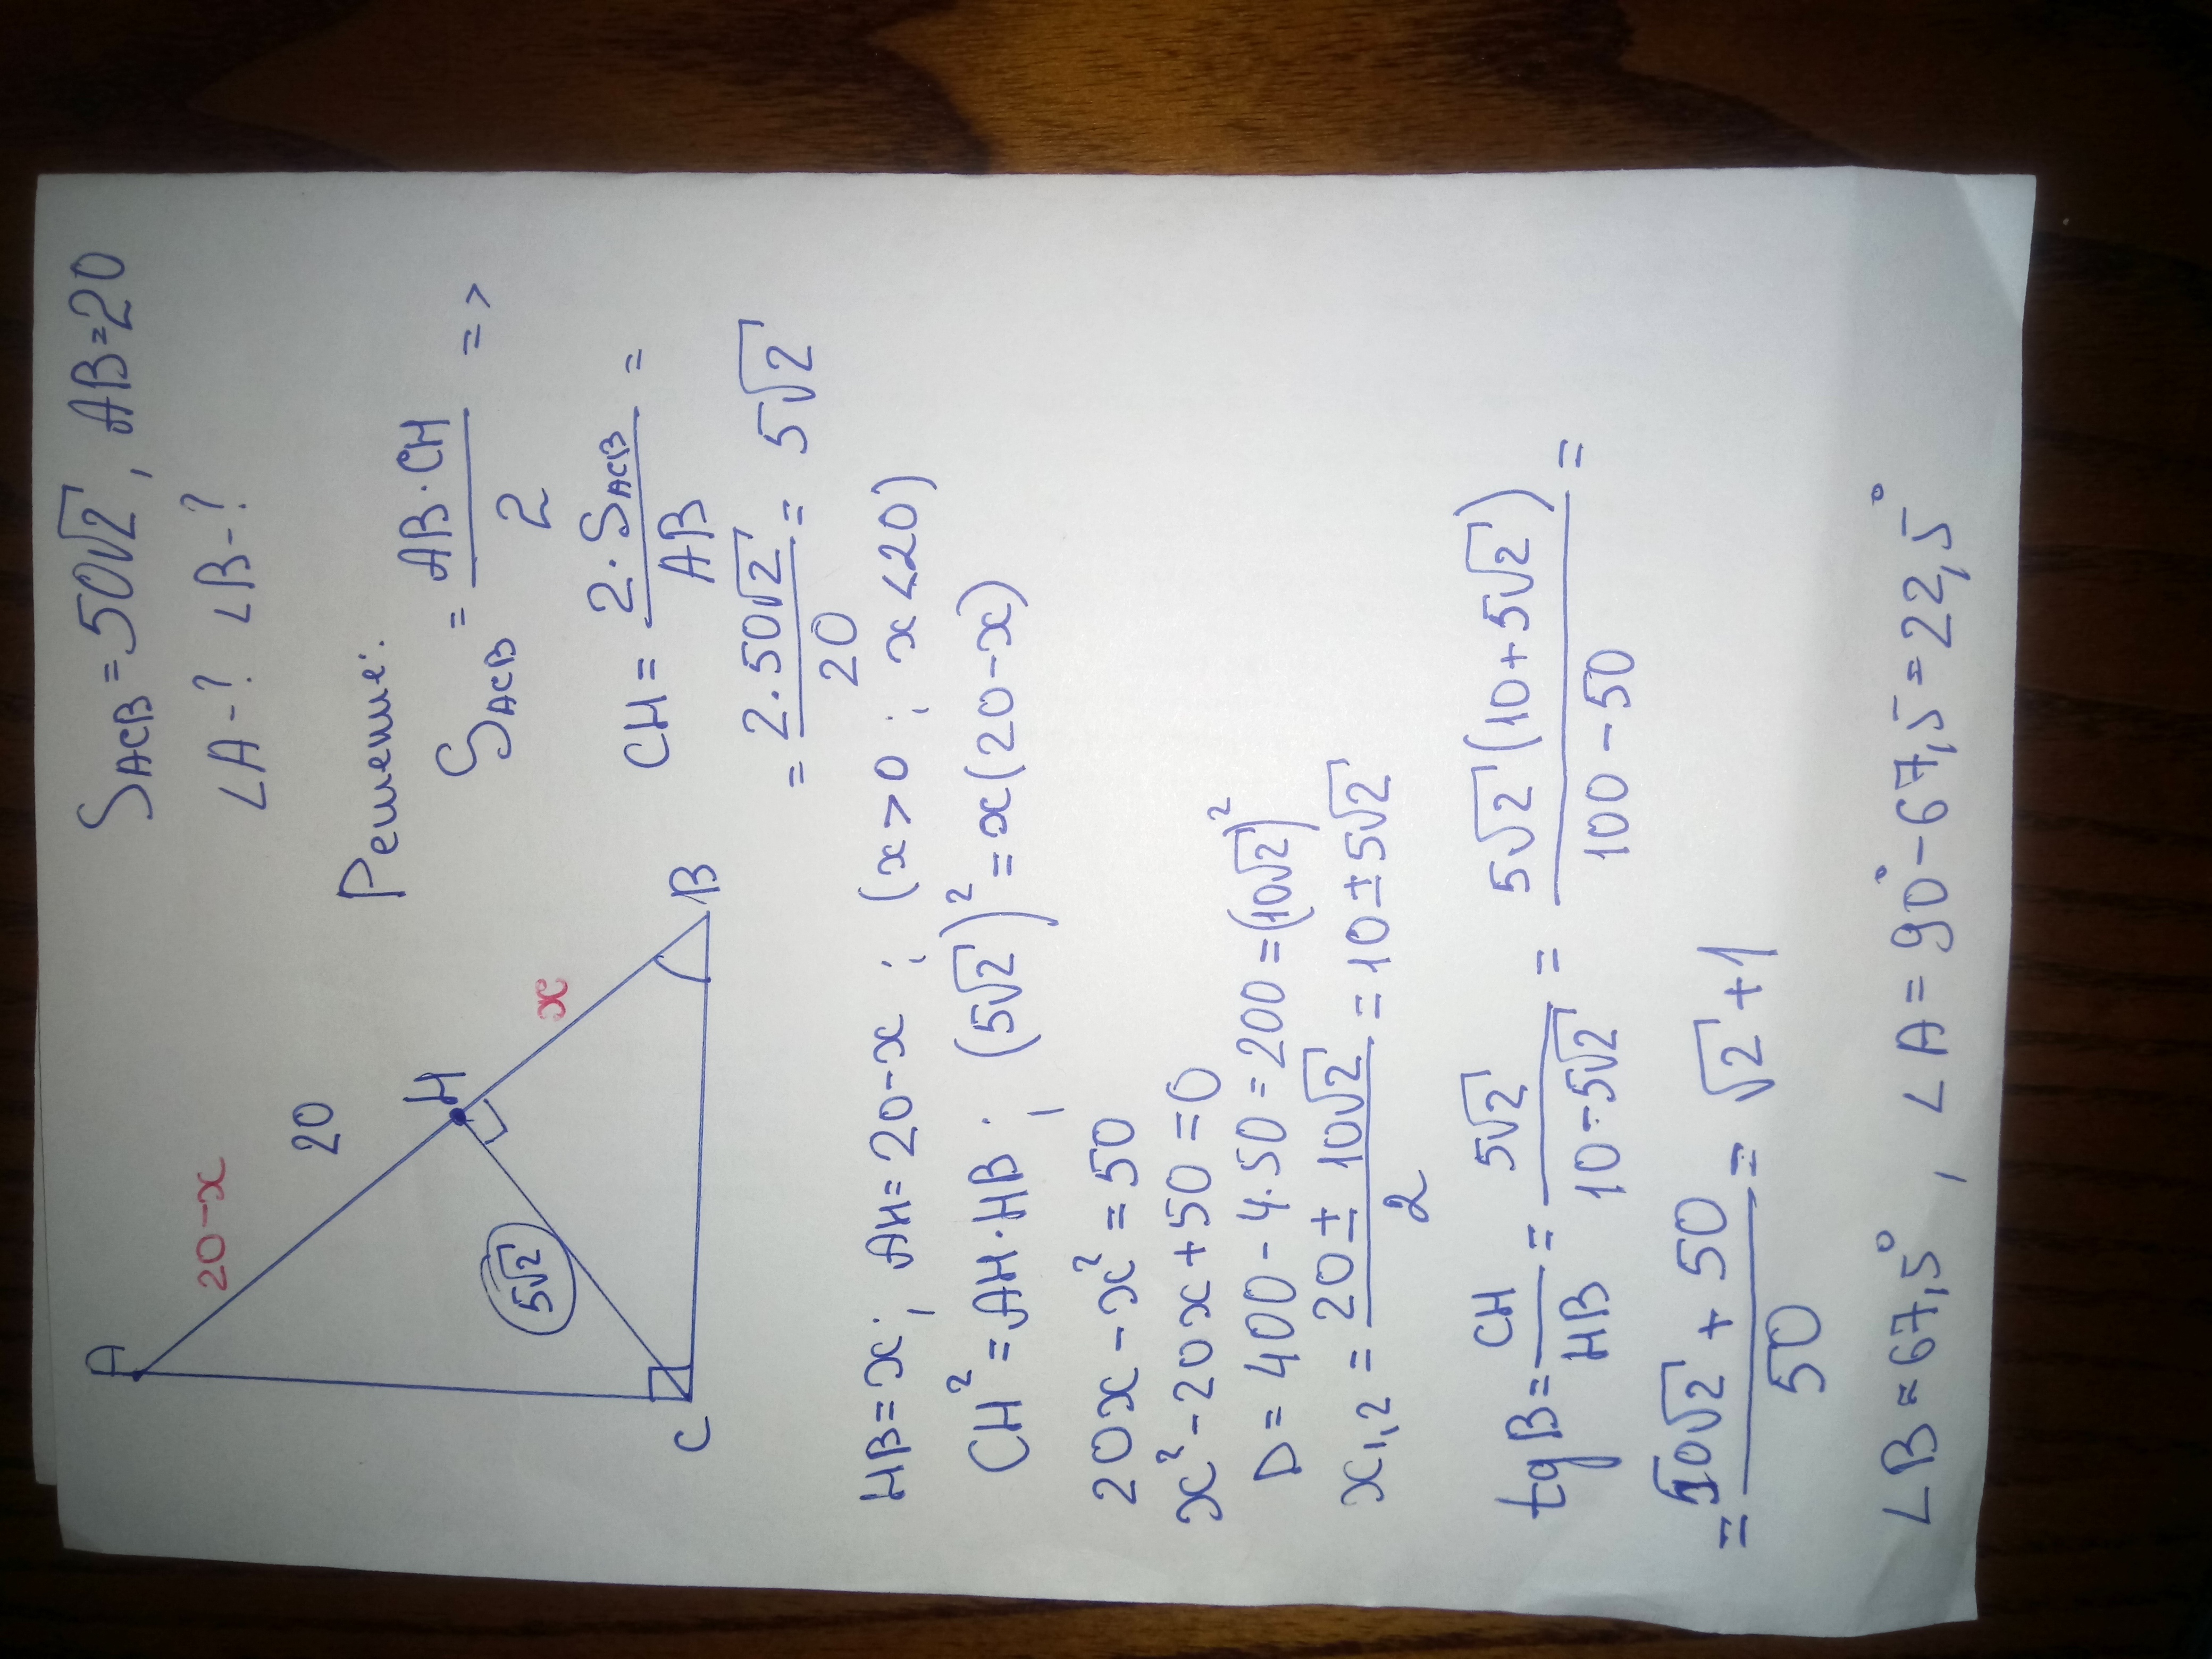 S_ACB = 50√2, AB=20
∠A-? ∠B-?
A
20-x
20
H
x
5√2
C
B
Решение:
S_ACB = (AB·CH)/2 =>
CH = (2·S_ACB)/AB =
= (2·50√2)/20 = 5√2
HB=x; AH=20-x; (x>0; x<20)
CH²=AH·HB; (5√2)²=x(20-x)
20x-x²=50
x²-20x+50=0
D=400-4·50=200=(10√2)²
x₁,₂ = (20±10√2)/2 = 10±5√2
tgB = CH/HB = 5√2/(10-5√2) = (5√2(10+5√2))/(100-50) =
= (50√2+50)/50 = √2+1
∠B=67,5°, ∠A=90°-67,5=22,5°